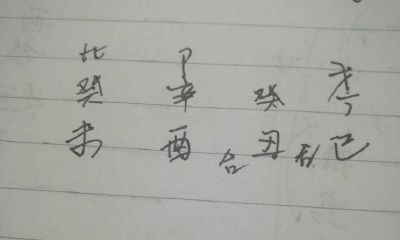 比 卩 才
癸 辛 癸 丁
未 酉 合 丑 巳